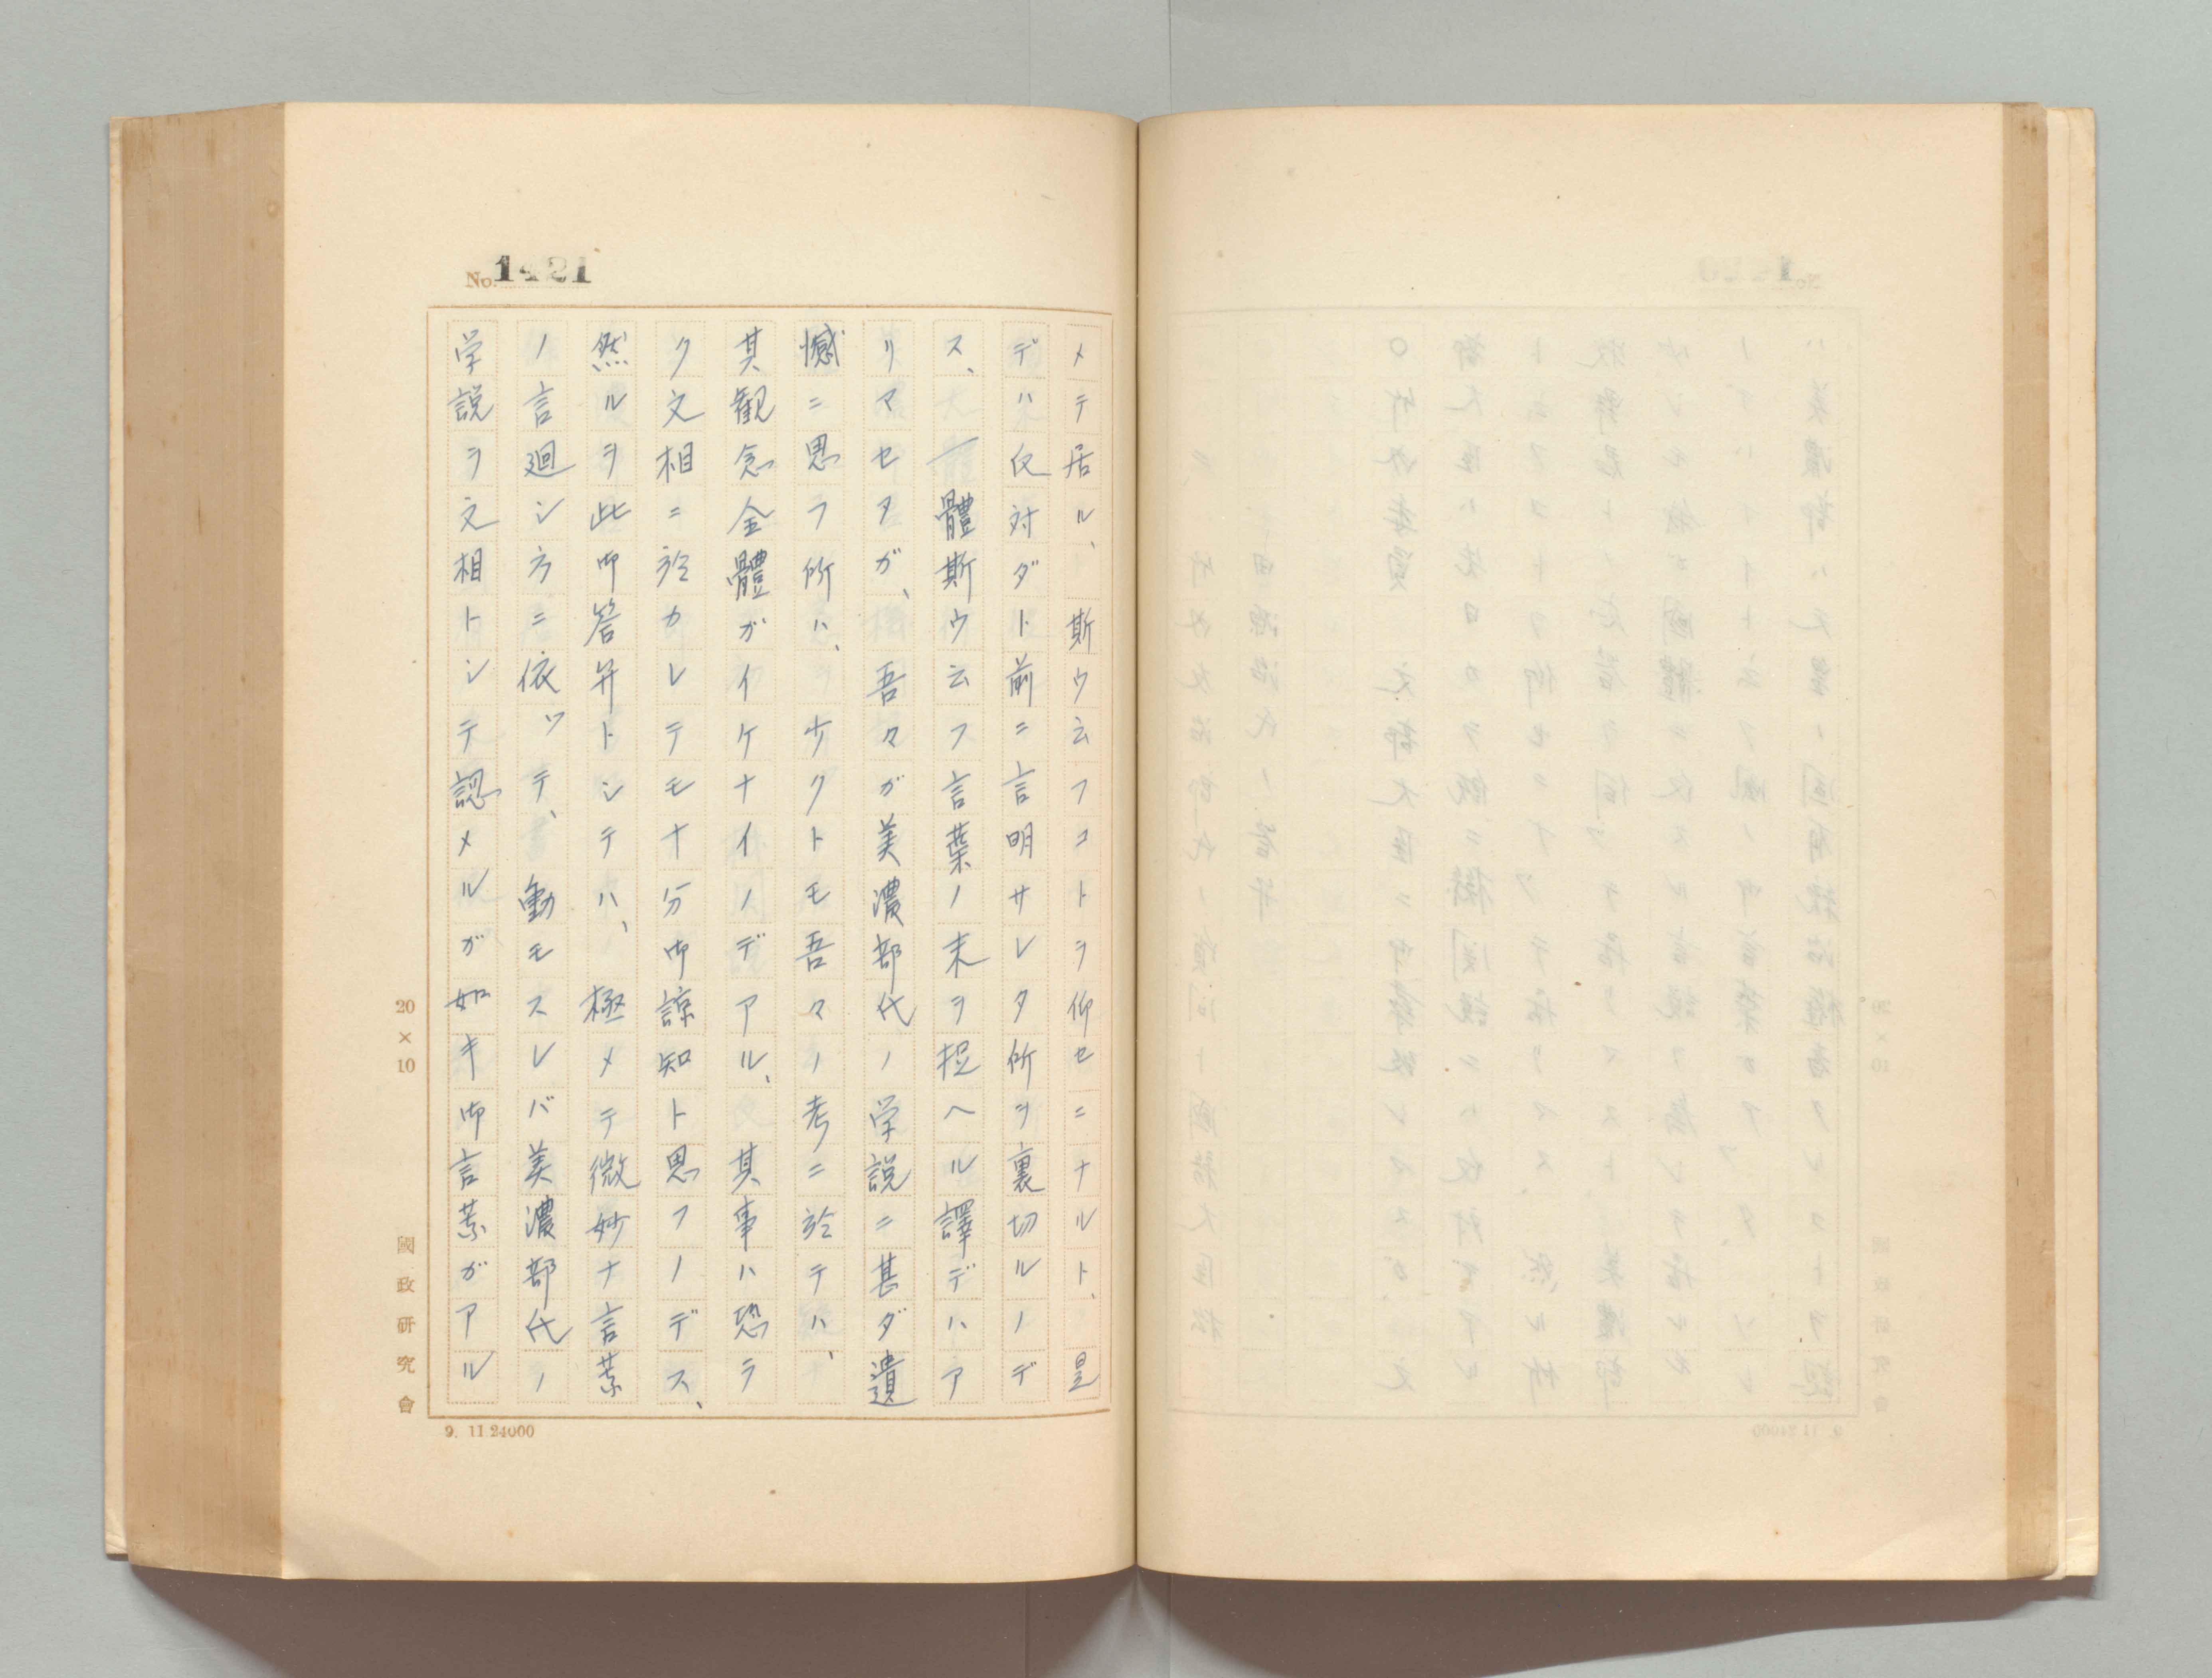 No. 1421
メテ居ル、斯ウ云フコトヲ仰セニナルト、是
デハ反対ダト前ニ言明サレタ所ヲ裏切ルノデ
ス、一體斯ウ云フ言葉ノ末ヲ捉ヘル譯デハア
リマセヌガ、吾々ガ美濃部氏ノ学説ニ甚ダ遺
憾ニ思フ所ハ、少クトモ吾々ノ考ニ於テハ、
其観念全體ガイケナイノデアル、其事ハ恐ラ
ク文相ニ於カレテモ十分御諒知ト思フノデス、
然ルヲ此御答弁トシテハ、極メテ微妙ナ言葉
ノ言廻シ方ニ依ツテ、動モスレバ美濃部氏ノ
学説ヲ文相トシテ認メルガ如キ御言葉ガアル
20×10
國政研究會
9. 11 24000